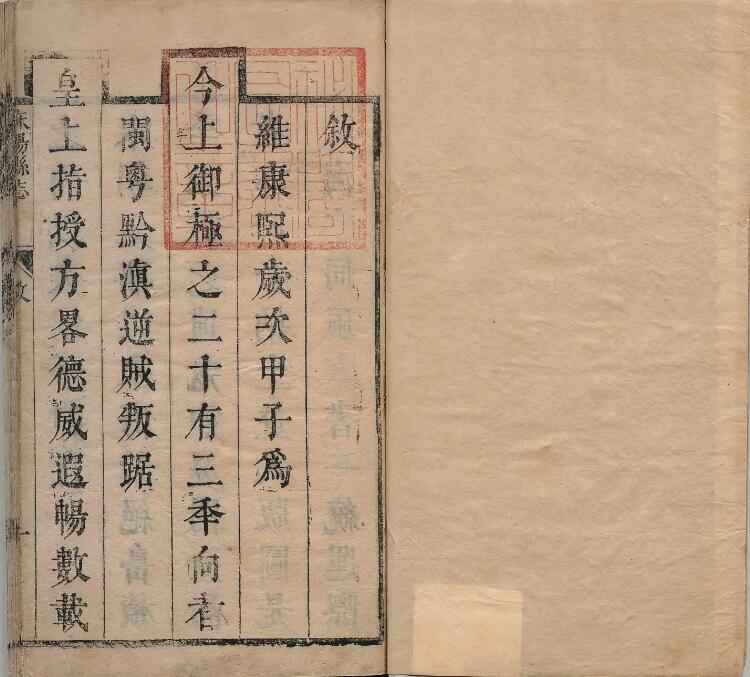 敘
維康熙歲次甲子為
今上御極之二十有三年向者
閩粵黔滇逆賊叛踞
皇上指授方畧德威遐暢數載
陽縣志
敘
一